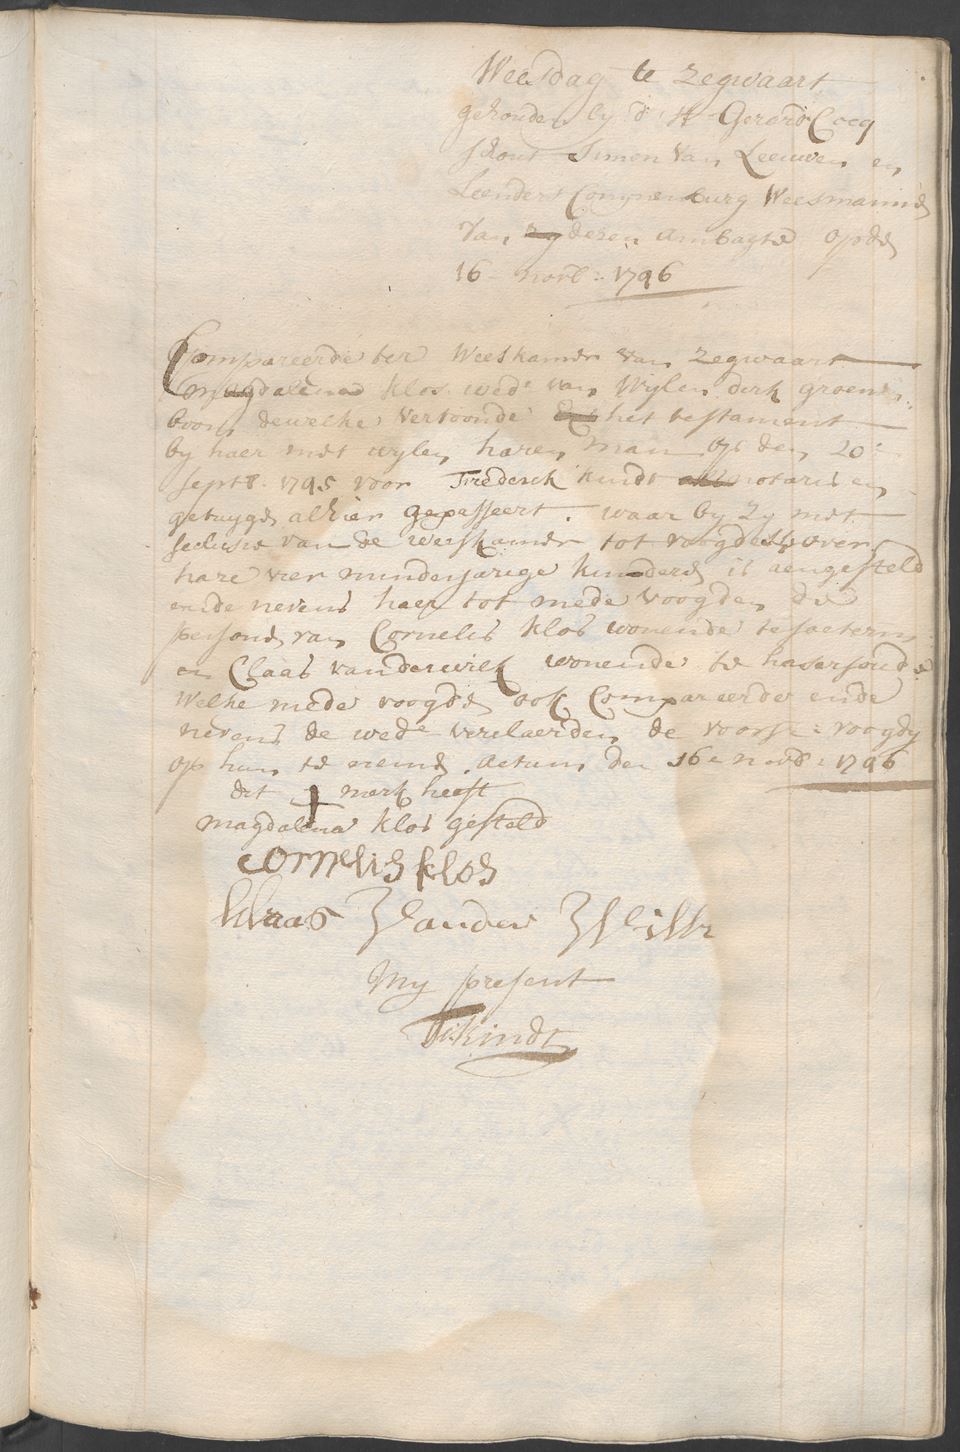 Weesdag te Zegwaart
gehouden by d' Hr Gerard Cocq
schout Simon van Leeuwen en
Leendert Conynenburg Weesmannen
van zy deren Ambagte op den
16 novb: 1796
Compareerde ter Weeskamer van Zegwaart
Magdalena Klos wede van Wylen dirk groene
boom dewelke vertoonde het testament
by haer met wylen haren man op den 20e
septb. 1795 voor Frederick Kindt notaris en
getuygen alhier gepasseert. waar by Zy met
seclusie van de weeskamer tot voogdesse over
hare vier minderjarige kinderen is aengesteld
ende nevens haer tot mede voogden de
persone van Cornelis Klos wonende te soeterm
en Claas van der wilk wonende te hasersoude
Welke mede voogden ook Compareerde ende
nevens de wede verclaerden de voorsc: voogdy
op hun te nemen. Actum den 16e novb: 1796
dit merk heeft
magdalena klos gesteld
cornelis klos
klaas van der Wilk
My present
F: Kindt